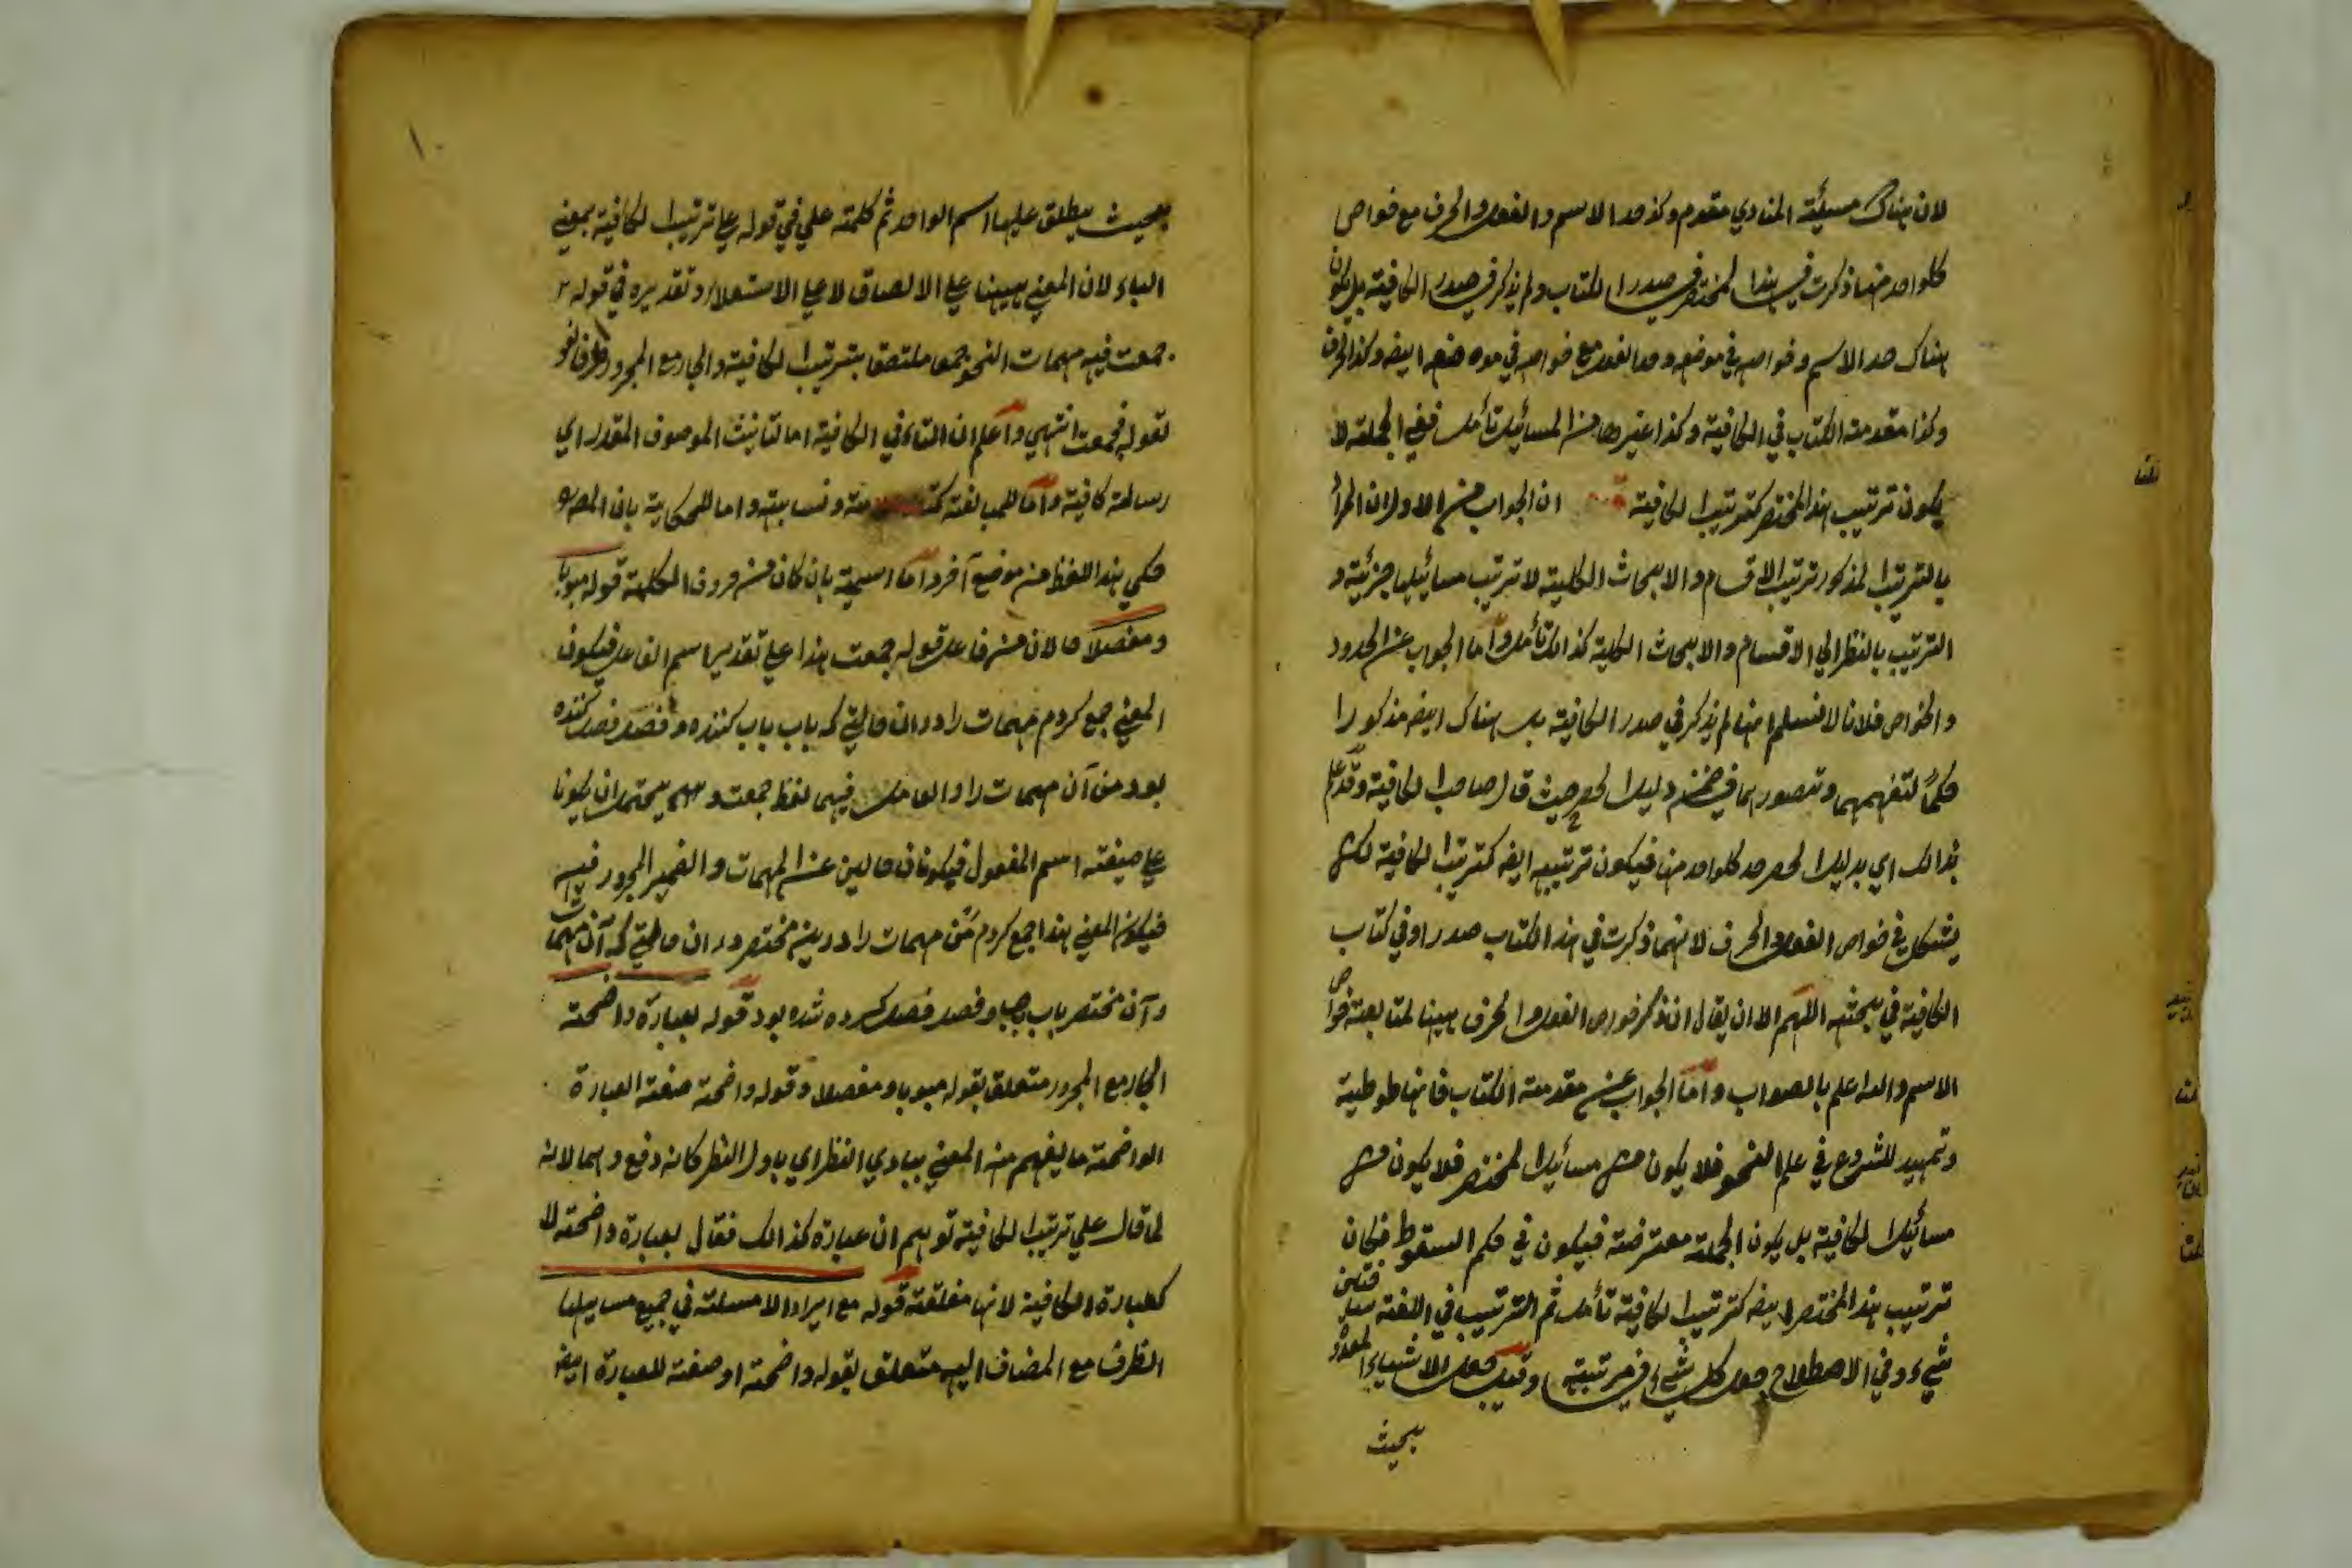 لان هناك مسئلة المنادي مقدم وكذا حد الاسم والفعل والحرف مع خواص
كلواحد منها ذكرت في هذا المختصر في صدر الكتاب ولم يذكر في صدر الكافية بل يكون
هناك حد الاسم وخواصه في موضعه وحد الفعل مع خواصه في موضعه ايضه وكذا الحرف
وكذا مقدمة الكتاب في الكافية وكذا غيرها من المسائيل تأمل ففي الجملة لا
يكون ترتيب هذا المختصر كترتيب الكافية ان الجواب عن الاول ان المراد
بالترتيب المذكور ترتيب الاقسام والابحاث الكلية لا ترتيب مسائيلها جزئية و
الترتيب بالنظر الي الاقسام والابحاث الكلية كذالك تأمل واما الجواب عن الحدود
والخواص فلانا لا نسلم انها لم يذكر في صدر الكافية بل هناك ايضه مذكورا
حكماً لتفهمهما وتصورهما في ضمن دليل الحصر حيث قال صاحب الكافية وقد علم
بذالك اي بدليل الحصر حد كلواحد منها فيكون ترتيبه ايضه كترتيب الكافية لكن
يشكل في خواص الفعل والحرف لانهما ذكرت في هذا الكتاب صدرا وفي كتاب
الكافية في بحثه اللهم الا ان يقال ان ذكر خواص الفعل والحرف ههنا لمتابعة خواص
الاسم والله اعلم بالصواب واما الجواب عن مقدمة الكتاب فانها طوطية
وتمهيد للشروع في علم النحو فلا يكون من مسائيل المختصر فلا يكون من
مسائيل الكافية بل يكون الجملة معترضة فيكون في حكم السقوط فكان
ترتيب هذا المختصر ايضه كترتيب الكافية تأمل ثم الترتيب في اللغة
شيء وفي الاصطلاح جعل كل شيء في مرتبته وقيل جعل الاشياء المتعددة
بحيث
بحيث يطلق عليها اسم الواحد ثم كلمة علي في قوله علي ترتيب الكافية بمعني
الباء لان المعني ههنا علي الالصاق لا علي الاستعلاء وتقديره في قوله
جمعت فيه مهمات النحو جمعا ملتصقا بترتيب الكافية والجار مع المجرور ظرف لغو
لقوله فجمعت انتهي واعلم ان التاء في الكافية اما لتانيث الموصوف المقدر اي
رسالة كافية واما للمبالغة ونسابة واما للحكاية بان المصه
حكي هذا اللفظ من موضع آخر واما اسمية بان كان من حروف الكلمة قوله مبوبا
ومفصلا حالان من فاعل قوله جمعت هذا علي تقدير اسم الفاعل فيكون
المعني جمع كردم مهمات را دران حالتي كه باب باب كننده وفصل فصل كننده
بود من آن مهمات را والعامل فيهما لفظ جمعت ويحتمل ان يكونا
علي صيغة اسم المفعول فيكونان حالين عن المهمات والضمير المجرور فيه
فيكون المعني هذا جمع كردم من مهمات را درين مختصر دران حالتي كه آن مهمات
وآن مختصر باب باب وفصل فصل كرده شده بود قوله بعبارة واضحة
الجار مع المجرور متعلق بقوله مبوبا ومفصلا وقوله واضحة صفة العبارة
الواضحة ما يفهم منه المعني ببادي النظر اي باول النظر كانه دفع وهما لانه
لما قال علي ترتيب الكافية توهم ان عبارة كذالك فقال بعبارة واضحة لا
كعبارة الكافية لانها مغلقة قوله مع ايراد الامسلة في جميع مسايلها
الظرف مع المضاف اليه متعلق بقوله واضحة او صفة للعبارة ايضه